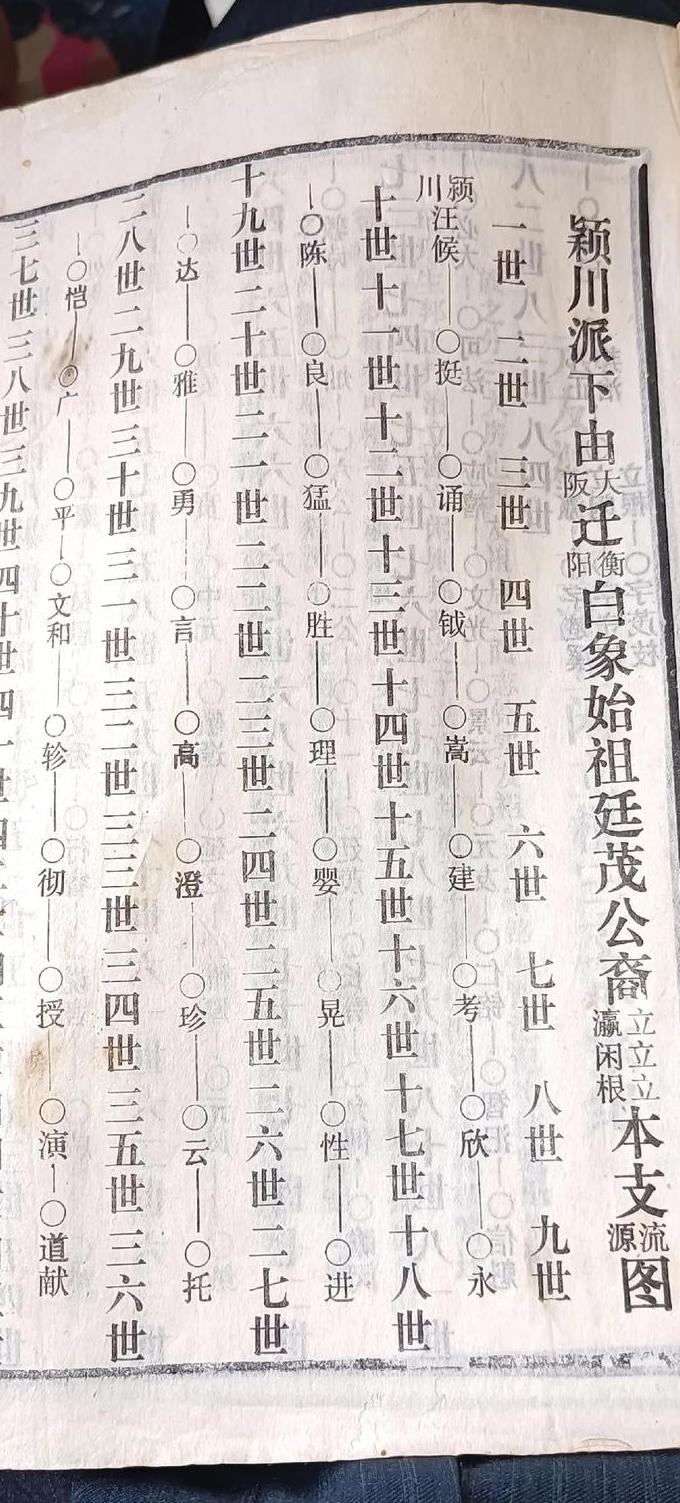 颍川派下由大阪迁衡阳白象始祖廷茂公裔立瀛立闲立根本支源流图
一世 二世 三世 四世 五世 六世 七世 八世 九世
颍川汪候——○挺——○诵——○钺——○嵩——○建——○考——○欣——○永
十世十一世十二世十三世十四世十五世十六世十七世十八世
—○陈——○良——○猛——○胜——○理——○婴——○晃——○性——○进
十九世二十世二一世二二世二三世二四世二五世二六世二七世
—○达——○雅——○勇——○言——○高——○澄——○珍——○云——○托
二八世二九世三十世三一世三二世三三世三四世三五世三六世
—○恺——○广——○平—○文和——○轸——○彻——○授——○演—○道献
三七世三八世三九世四十世四一世